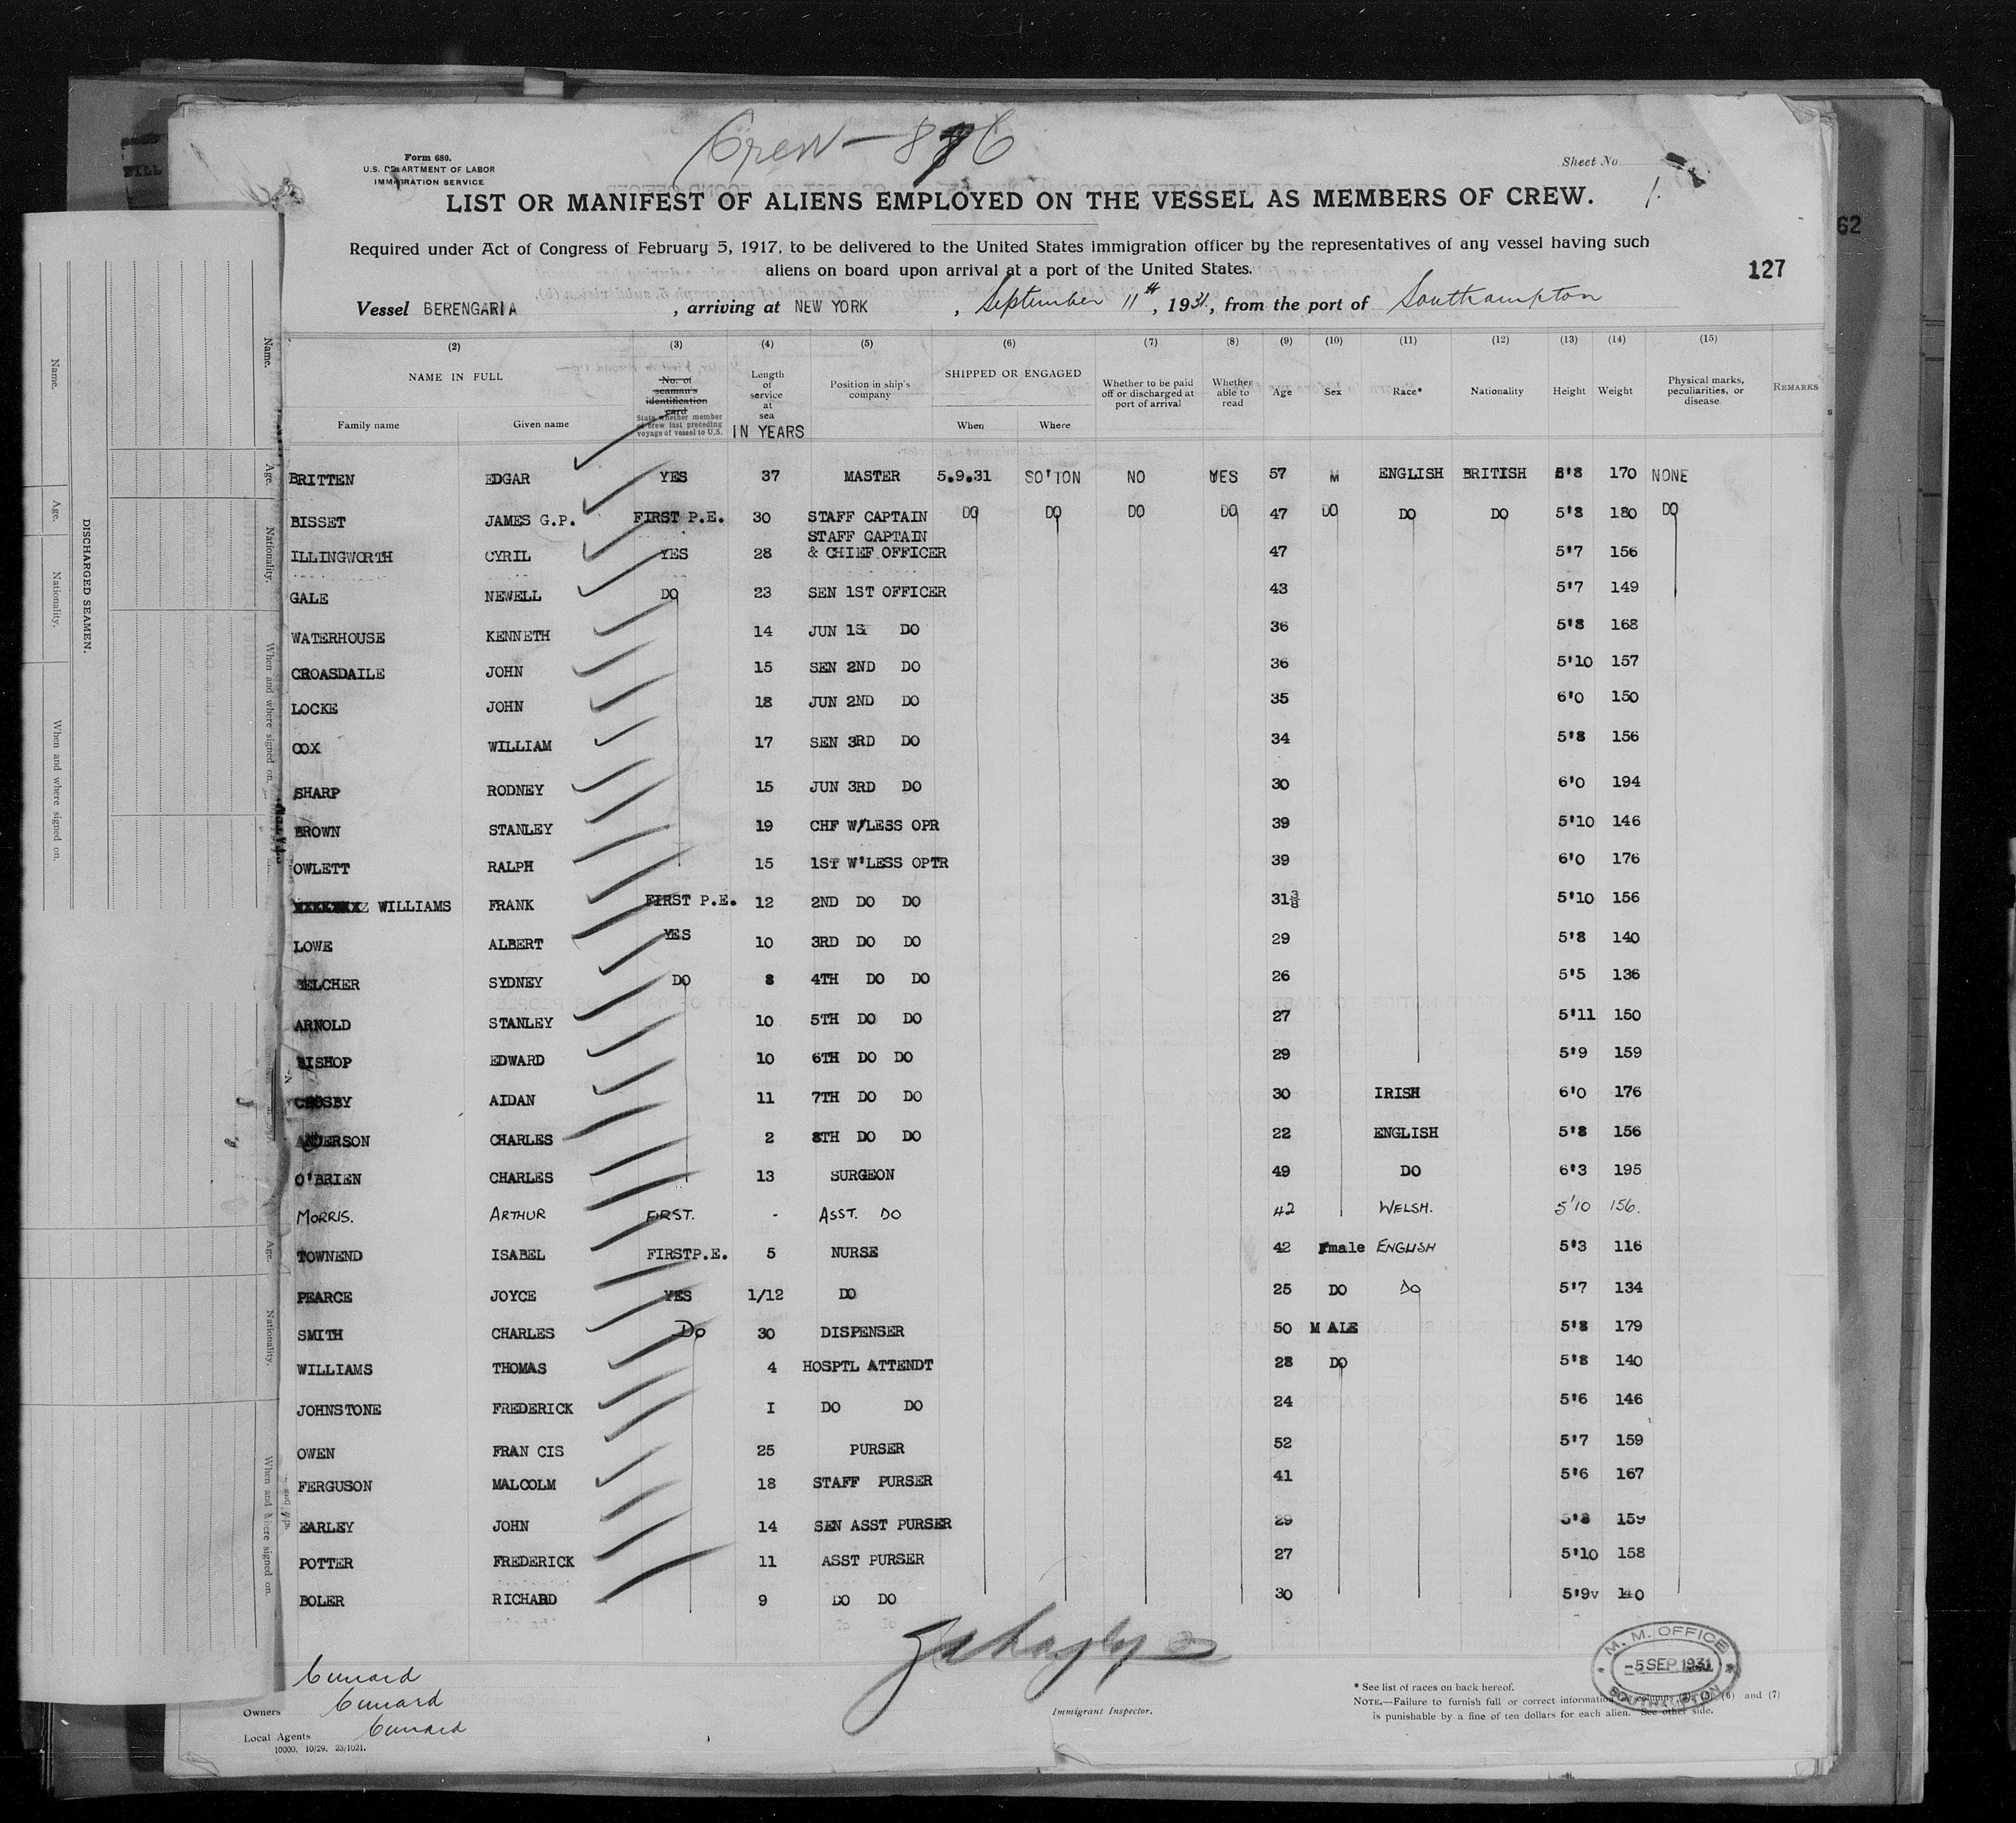 Crew - 886
Form 680.
U.S. DEPARTMENT OF LABOR
IMMIGRATION SERVICE
Sheet No. 1.
LIST OR MANIFEST OF ALIENS EMPLOYED ON THE VESSEL AS MEMBERS OF CREW.
Required under Act of Congress of February 5, 1917, to be delivered to the United States immigration officer by the representatives of any vessel having such
aliens on board upon arrival at a port of the United States.
127
62
Vessel BERENGARIA, arriving at NEW YORK, September 11th, 1931, from the port of Southampton
(2) (3) (4) (5) (6) (7) (8) (9) (10) (11) (12) (13) (14) (15)
NAME IN FULL
Family name
Given name
No. of seaman's identification card
State whether member of crew last preceding voyage of vessel to U.S.
Length of service at sea
IN YEARS
Position in ship's company
SHIPPED OR ENGAGED
When
Where
Whether to be paid off or discharged at port of arrival
Whether able to read
Age
Sex
Race*
Nationality
Height
Weight
Physical marks, peculiarities, or disease
REMARKS
BRITTEN EDGAR YES 37 MASTER 5.9.31 SO'TON NO YES 57 M ENGLISH BRITISH 5'8 170 NONE
BISSET JAMES G.P. FIRST P.E. 30 STAFF CAPTAIN DO DO DO DO 47 DO DO DO 5'8 180 DO
ILLINGWORTH CYRIL YES 28 STAFF CAPTAIN & CHIEF OFFICER 47 5'7 156
GALE NEWELL DO 23 SEN 1ST OFFICER 43 5'7 149
WATERHOUSE KENNETH 14 JUN 1S DO 36 5'8 168
CROASDAILE JOHN 15 SEN 2ND DO 36 5'10 157
LOCKE JOHN 18 JUN 2ND DO 35 6'0 150
COX WILLIAM 17 SEN 3RD DO 34 5'8 156
SHARP RODNEY 15 JUN 3RD DO 30 6'0 194
BROWN STANLEY 19 CHF W/LESS OPR 39 5'10 146
OWLETT RALPH 15 1ST W'LESS OPTR 39 6'0 176
WILLIAMS FRANK FIRST P.E. 12 2ND DO DO 31 3/8 5'10 156
LOWE ALBERT YES 10 3RD DO DO 29 5'8 140
BELCHER SYDNEY DO 8 4TH DO DO 26 5'5 136
ARNOLD STANLEY 10 5TH DO DO 27 5'11 150
BISHOP EDWARD 10 6TH DO DO 29 5'9 159
CROSBY AIDAN 11 7TH DO DO 30 IRISH 6'0 176
ANDERSON CHARLES 2 8TH DO DO 22 ENGLISH 5'8 156
O'BRIEN CHARLES 13 SURGEON 49 DO 6'3 195
MORRIS. ARTHUR FIRST. - ASST. DO 42 WELSH. 5'10 156.
TOWNEND ISABEL FIRSTP.E. 5 NURSE 42 Fmale ENGLISH 5'3 116
PEARCE JOYCE YES 1/12 DO 25 DO DO 5'7 134
SMITH CHARLES Do 30 DISPENSER 50 M ALE 5'8 179
WILLIAMS THOMAS 4 HOSPTL ATTENDT 28 DO 5'8 140
JOHNSTONE FREDERICK I DO DO 24 5'6 146
OWEN FRAN CIS 25 PURSER 52 5'7 159
FERGUSON MALCOLM 18 STAFF PURSER 41 5'6 167
EARLEY JOHN 14 SEN ASST PURSER 29 5'8 159
POTTER FREDERICK 11 ASST PURSER 27 5'10 158
BOLER RICHARD 9 DO DO 30 5'9v 140
Cunard
Owners Cunard
Local Agents Cunard
10000. 10/29. 23/1021.
Immigrant Inspector.
* See list of races on back hereof.
NOTE.—Failure to furnish full or correct information in columns (2), (6) and (7)
is punishable by a fine of ten dollars for each alien. See other side.
M. M. OFFICE
-5 SEP 1931
SOUTHAMPTON
DISCHARGED SEAMEN.
Name.
Age.
Nationality.
When and where signed on.
Name.
Age.
Nationality.
When and where signed on.
Age.
Nationality.
When and where signed on.